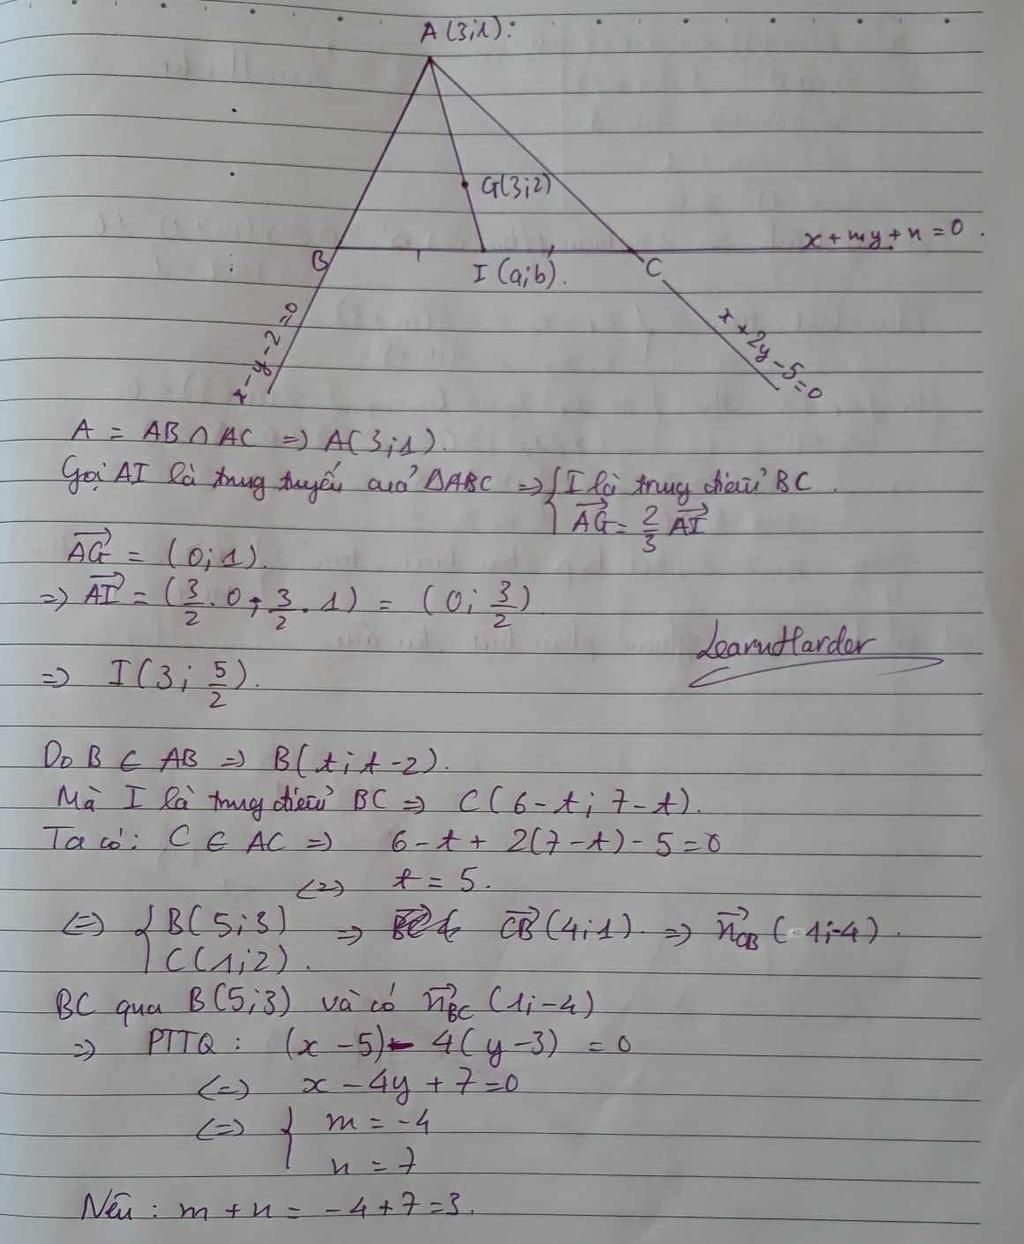 A(3;1):
G(3;2)
x+my+n=0.
B
I(a;b).
C
x-y-2=0
x+2y-5=0
A = AB ∩ AC => A(3;1).
Gọi AI là trung tuyến của ΔABC => { I là trung điểm BC.
AG = 2/3 AI
AG = (0;1).
=> AI = (3/2.0; 3/2.1) = (0; 3/2)
LearnHarder
=> I(3; 5/2).
Do B ∈ AB => B(t; t-2).
Mà I là trung điểm BC => C(6-t; 7-t).
Ta có: C ∈ AC => 6-t + 2(7-t) - 5 = 0
<=> t = 5.
<=> { B(5;3) => CB(4;1). => n CB (1;-4).
C(1;2).
BC qua B(5;3) và có n BC (1;-4)
=> PTTQ: (x-5) - 4(y-3) = 0
<=> x - 4y + 7 = 0
<=> { m = -4
n = 7
Nên: m + n = -4 + 7 = 3.